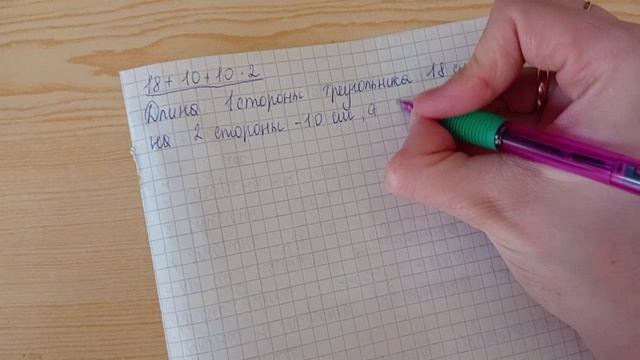 18 + 10 + 10 · 2
Длина 1 стороны треугольника 18
на 2 стороны - 10 см, а